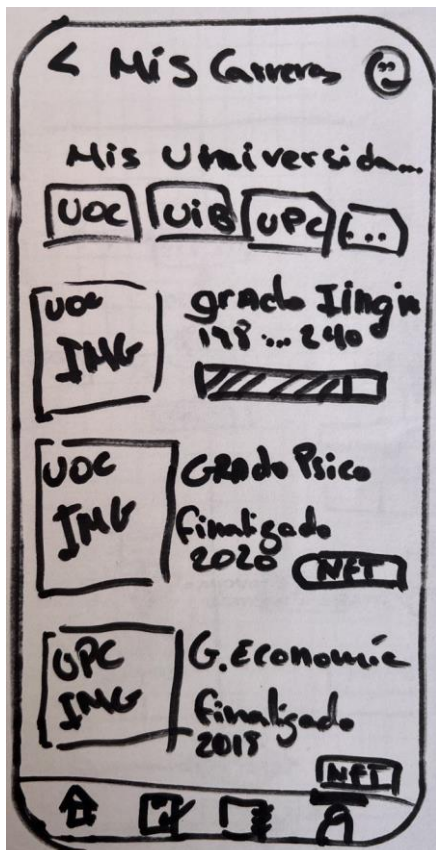 < Mis Carreras
Mis Universida...
UOC UiB UPC ...
UOC
IMG
grado
198 ... 240
UOC
IMG
GRAdo Psico
finalizado
2020 NFT
UPC
IMG
G. Economía
finalizado
2018
NFT